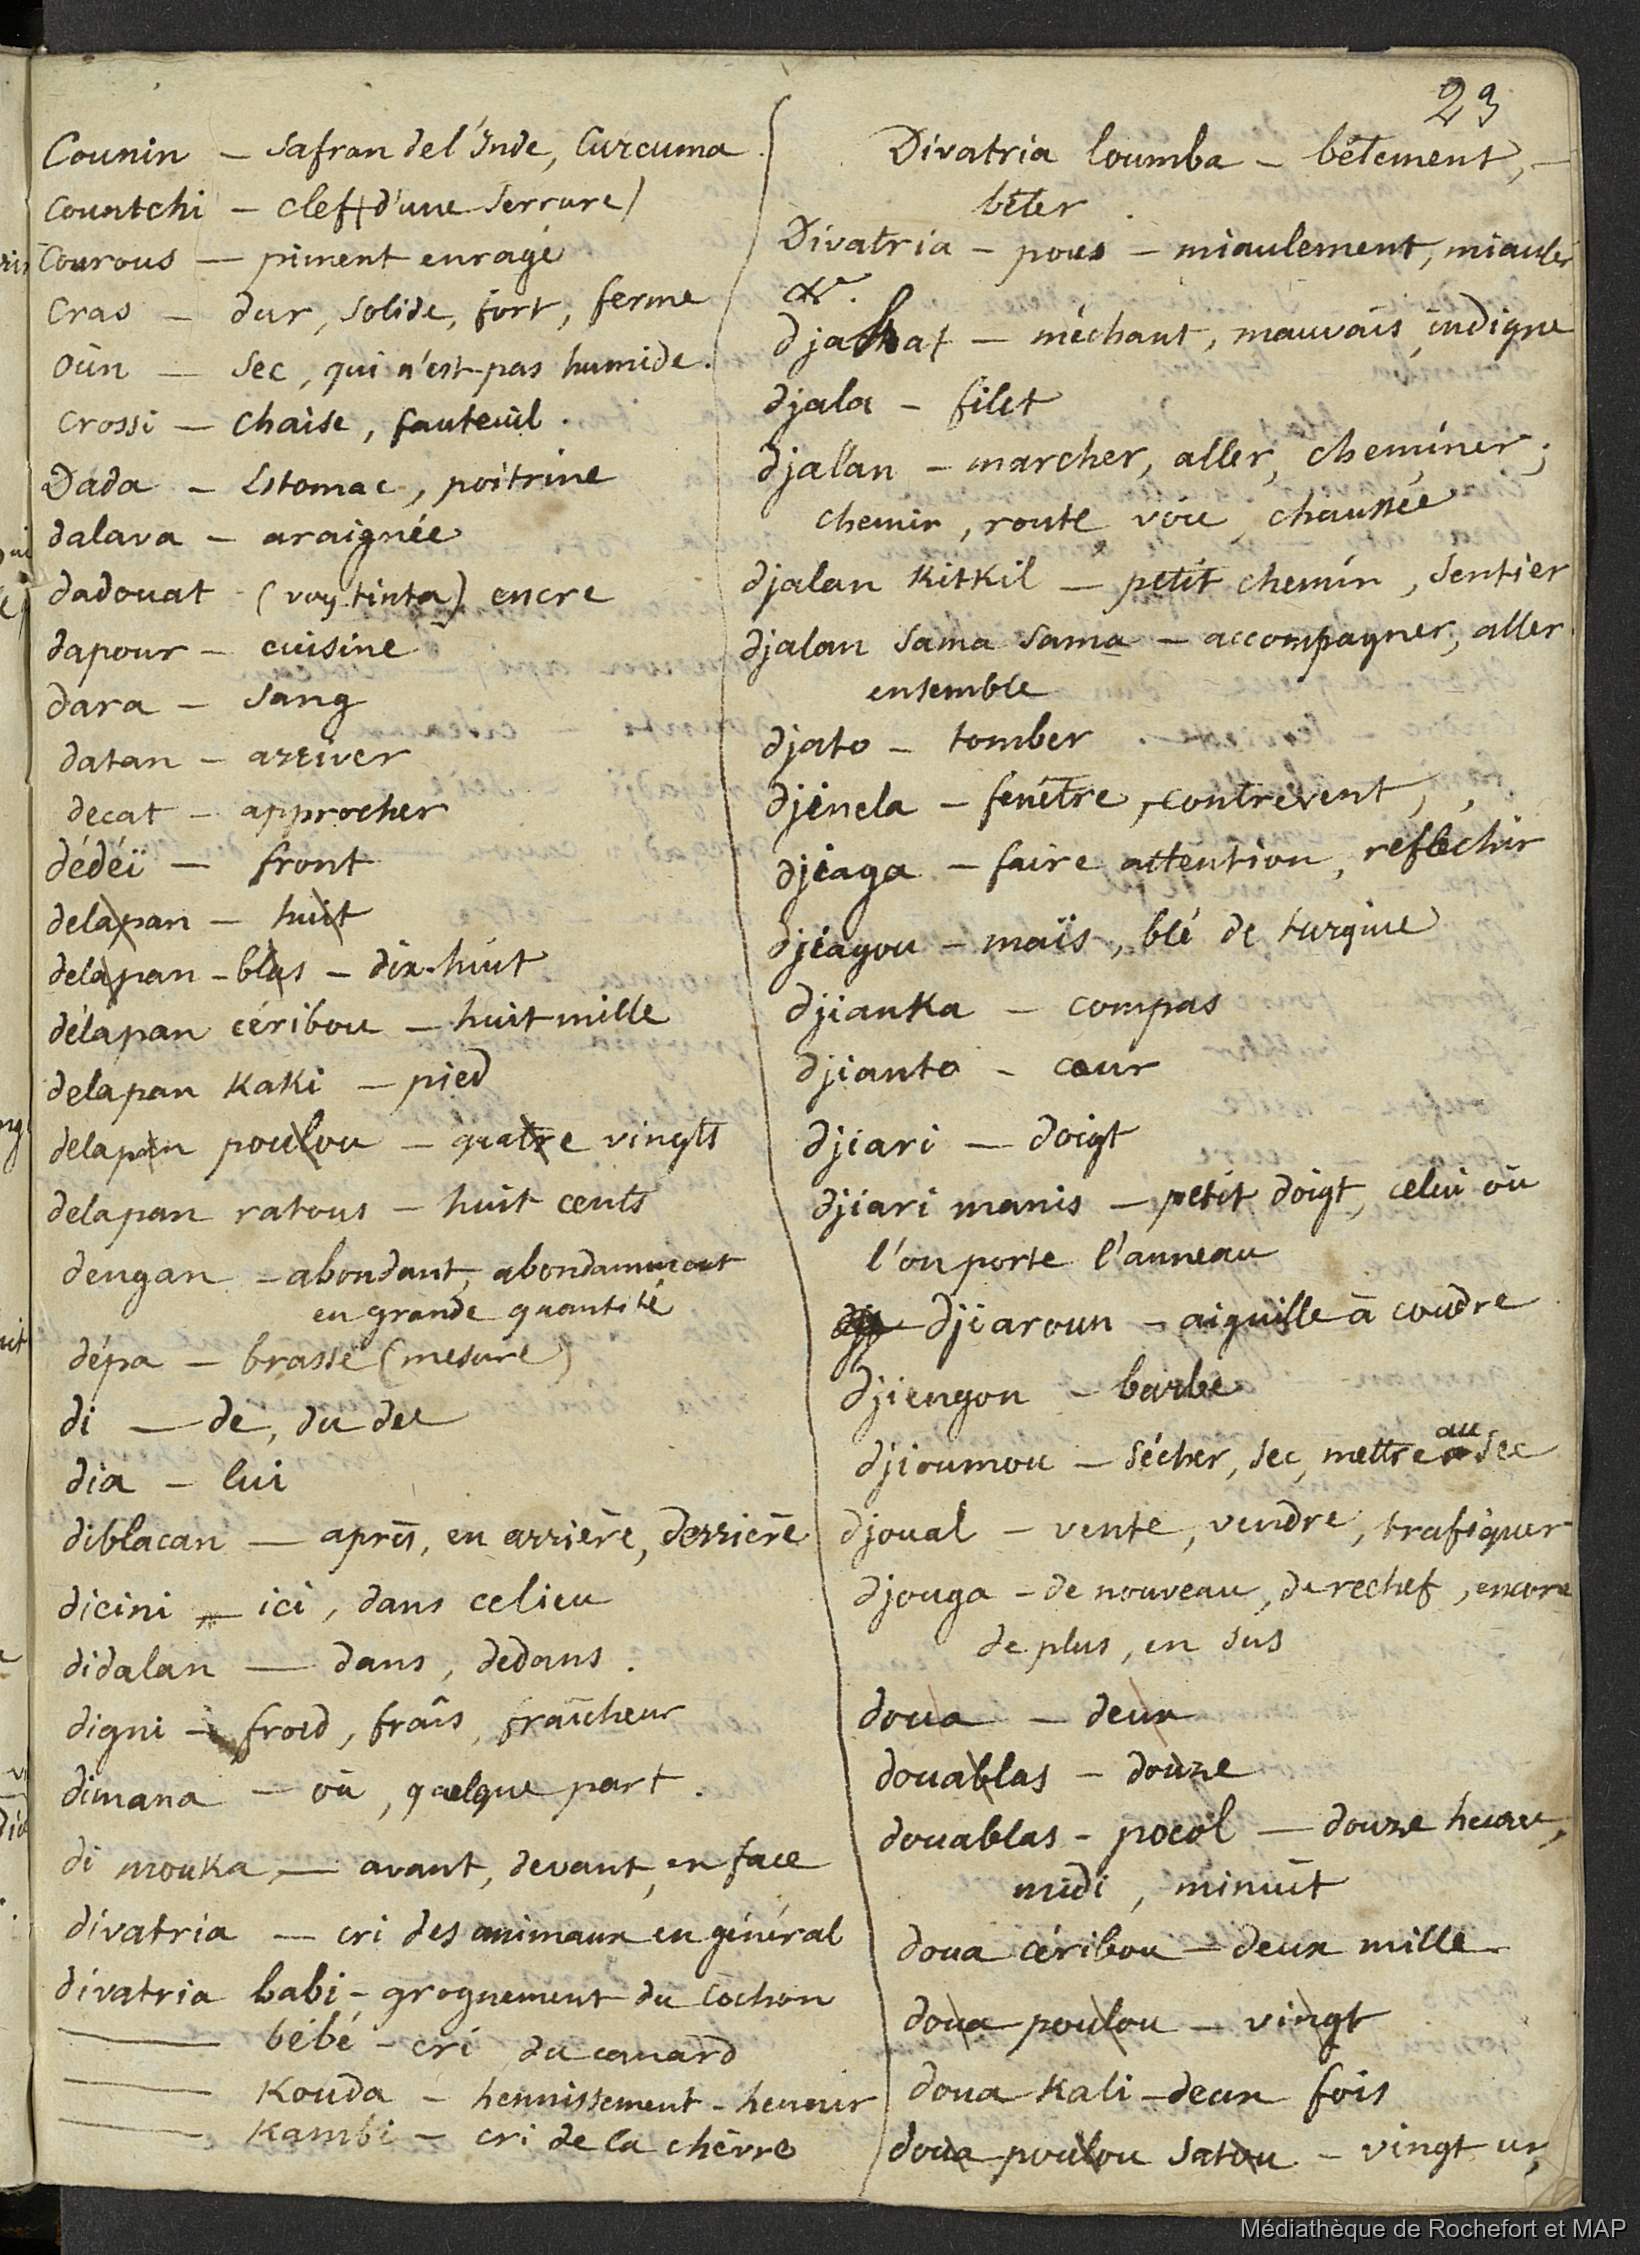 23
Counin – safran del'Inde, Curcuma.
Countchi – clef (d'une Serrure)
Courous – piment enragé
Cras – dur, Solide, fort, ferme
Oùn – Sec, qui n'est pas humide.
Crossi – chaise, fauteuil.
Dada – Estomac, poitrine
dalava – araignée
dadouat – (voy. tinta) encre
dapour – cuisine
dara – Sang
datan – arriver
decat – approcher
dédéï – front
delapan – huit
delapan – blas – dix-huit
délapan céribou – huit mille
delapan Kaki – pied
delapan poulou – quatre vingts
delapan ratous – huit cents
dengan – abondant, abondamment
en grande quantité
dépa – brasse (mesure)
di – de, du des
dia – lui
diblacan – après, en arrière, derrière
dicini – ici, dans celieu
didalan – dans, dedans.
digni – froid, frais, fraîcheur
dimana – où, quelque part.
di mouka – avant, devant, en face
divatria – cri des animaux en général
divatria babi – grognement du Cochon
— bébé – cri du canard
— Kouda – hennissement – hennir
— Kambi – cri de la chèvre
Divatria loumba – bêlement, –
bêler.
Divatria – pous – miaulement, miauler
&c.
djahat – méchant, mauvais, indigne
djala – filet
djalan – marcher, aller, cheminer;
chemin, route, voie, chaussée
djalan Kitkil – petit chemin, Sentier
djalan Sama Sama – accompagner, aller
ensemble
djato – tomber.
djinela – fenêtre, contrevent,
djiaga – faire attention, reflechir
djiagou – maïs, blé de turquie
djianka – compas
djianto – cœur
djiari – doigt
djiari manis – petit doigt, celui où
l'on porte l'anneau
djiaroun – aiguille à coudre
djiengon – barbe
djioumou – Sécher, Sec, mettre au Sec
djoual – vente, vendre, trafiquer
djouga – de nouveau, derechef, encore
de plus, en sus
doua – deux
douablas – douze
douablas – pocol – douze heures,
midi, minuit
doua céribou – deux mille
doua poulou – vingt
doua Kali – deux fois
doua poulou Satou – vingt un
Médiathèque de Rochefort et MAP